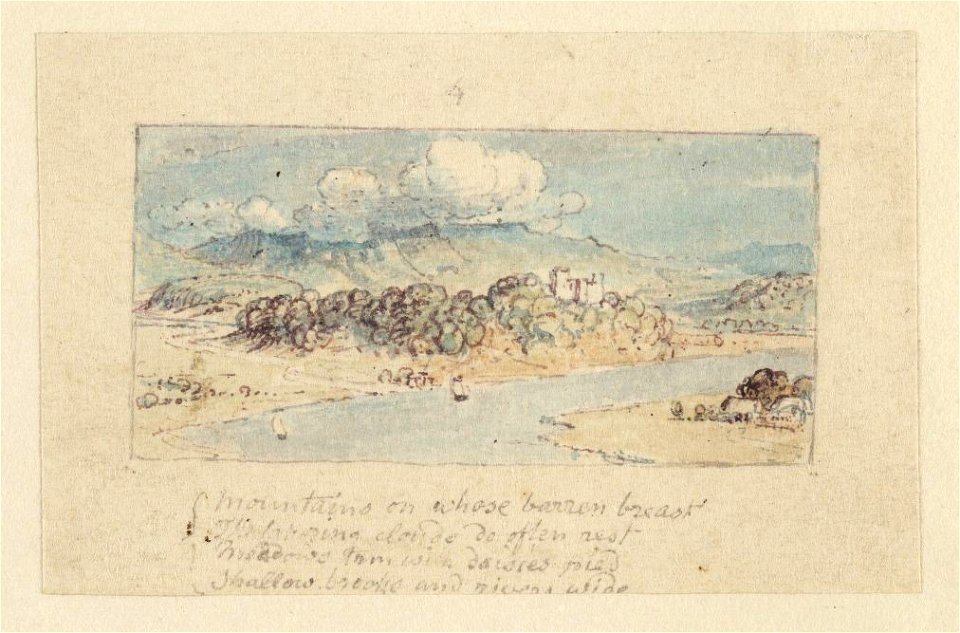 4
Mountains on whose barren breast
The lab'ring clouds do often rest
Meadows trim with daisies pied
Shallow brooks and rivers wide